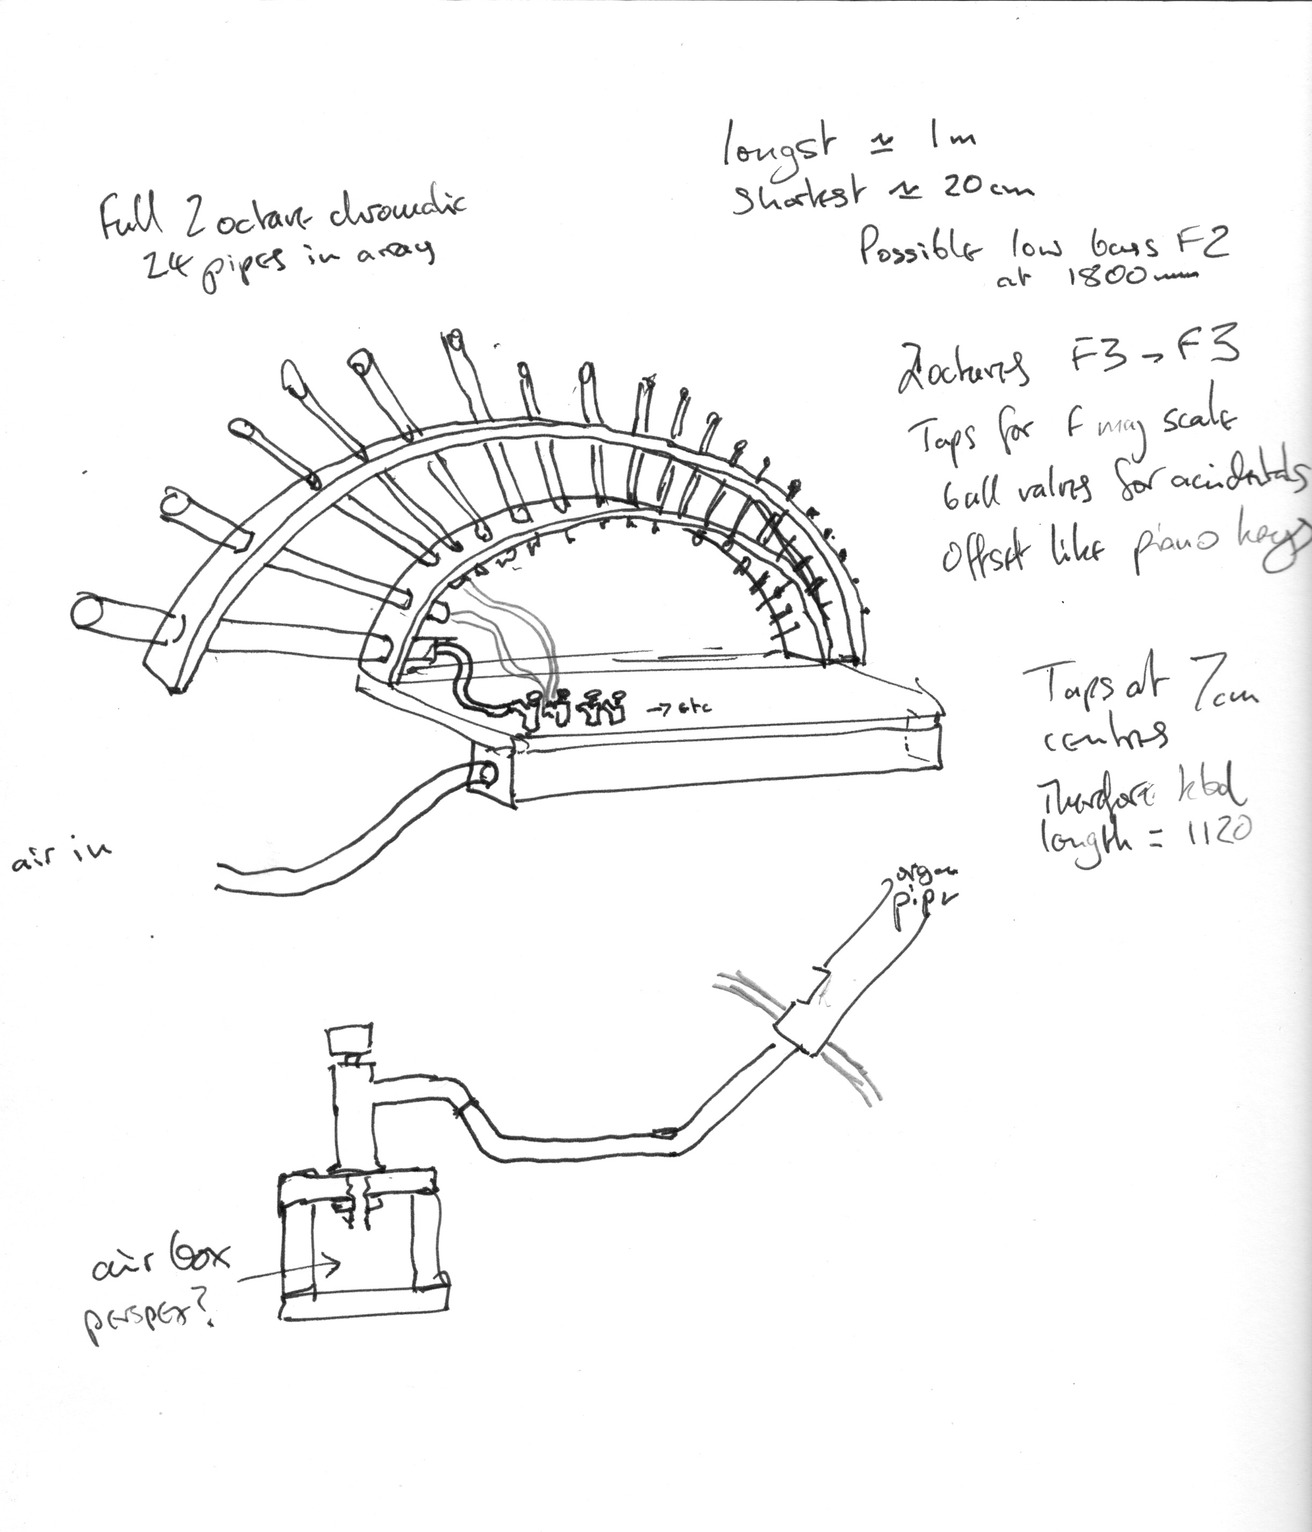 longst ≃ 1m
shortest ≃ 20cm
Full 2 octave chromatic
24 pipes in array
Possible low bass F2
at 1800mm
2 octaves F3 → F3
Taps for F maj scale
ball valves for acindentals
offset like piano keys
→ etc
Taps at 7cm
centres
Therfore kbd
length = 1120
air in
organ
pipe
air box
perspex?